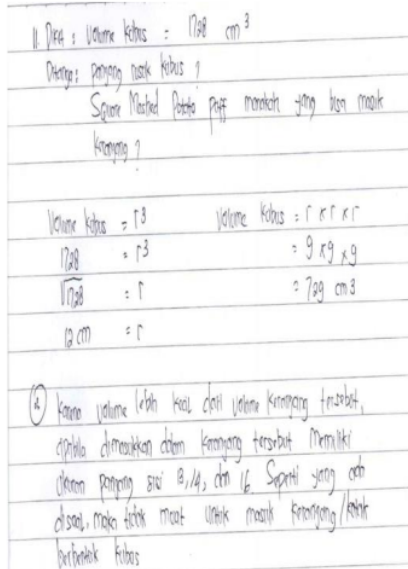 11. Diket : Volume kubus = 1728 cm³
Ditanya : panjang rusuk kubus ?
Square Mashed Potato puff manakah yang bisa masuk
keranjang ?
Volume kubus = r³
1728 = r³
√1728 = r
12 cm = r
Volume kubus = r x r x r
= 9 x 9 x 9
= 729 cm3
② Karena volume lebih kecil dari volume keranjang tersebut,
apabila dimasukkan dalam keranjang tersebut memiliki
ukuran panjang sisi 14, dan 16. Seperti yang ada
disoal, maka tidak muat untuk masuk keranjang/kotak
berbentuk kubus